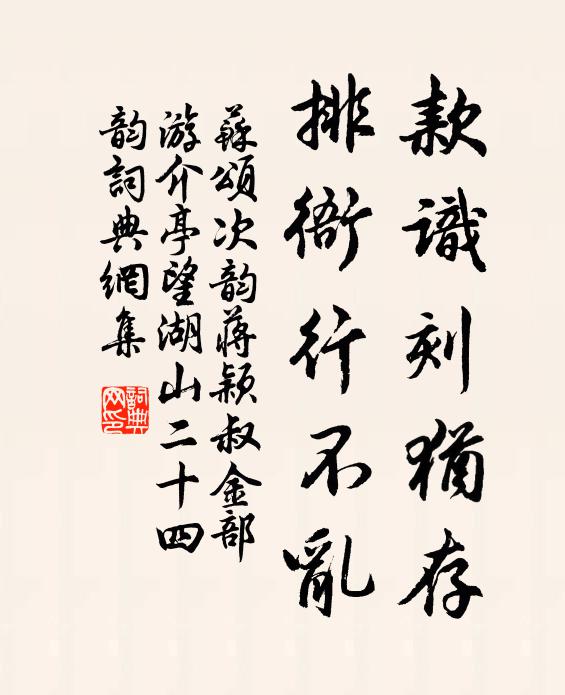 款識刻猶存
排衙行不亂
蘇頌次韵蔣颖叔金部
游介亭望湖山二十四
韵詞典網集
詞典
网印